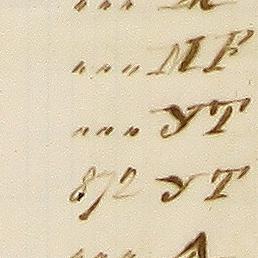 " " " MF
" " " YT
872 YT